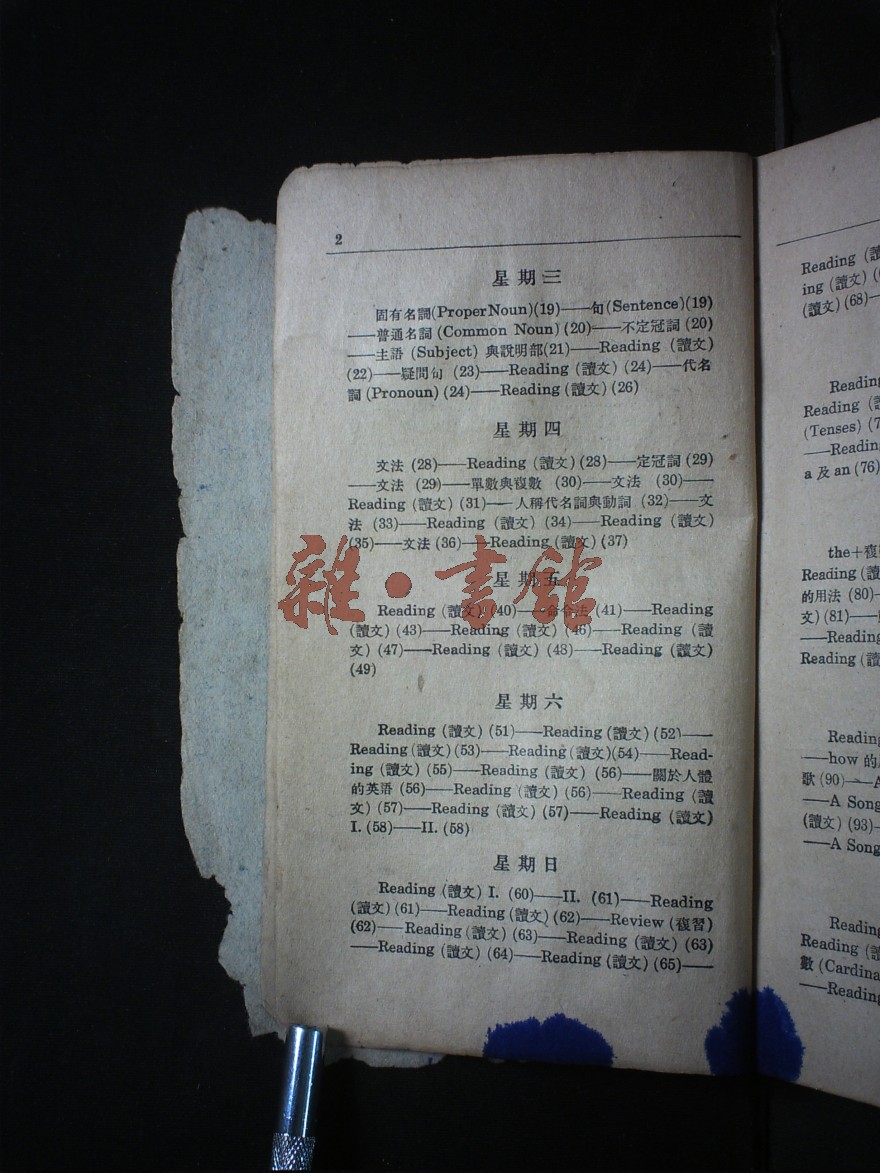 2
星期三
固有名詞(Proper Noun)(19)——句(Sentence)(19)
——普通名詞 (Common Noun) (20)——不定冠詞 (20)
——主語 (Subject) 與說明部(21)——Reading (讀文)
(22)——疑問句 (23)——Reading (讀文) (24)——代名
詞 (Pronoun) (24)——Reading (讀文) (26)
星期四
文法 (28)——Reading (讀文) (28)——定冠詞 (29)
——文法 (29)——單數與複數 (30)——文法 (30)——
Reading (讀文) (31)——人稱代名詞與動詞 (32)——文
法 (33)——Reading (讀文) (34)——Reading (讀文)
(35)——文法 (36)——Reading (讀文) (37)
星期五
Reading (讀文) (40)——命令法 (41)——Reading
(讀文) (43)——Reading (讀文) (46)——Reading (讀
文) (47)——Reading (讀文) (48)——Reading (讀文)
(49)
星期六
Reading (讀文) (51)——Reading (讀文) (52)——
Reading (讀文) (53)——Reading (讀文)(54)——Read-
ing (讀文) (55)——Reading (讀文) (56)——關於人體
的英語 (56)——Reading (讀文) (56)——Reading (讀
文) (57)——Reading (讀文) (57)——Reading (讀文)
I. (58)——II. (58)
星期日
Reading (讀文) I. (60)——II. (61)——Reading
(讀文) (61)——Reading (讀文) (62)——Review (複習)
(62)——Reading (讀文) (63)——Reading (讀文) (63)
——Reading (讀文) (64)——Reading (讀文) (65)——
雜·書館
Reading
ing (讀文)
(讀文) (68)—
Reading
Reading
(Tenses)
——Reading
a 及 an (76)
the+複
Reading
的用法 (80)—
文) (81)——
——Reading
Reading
Reading
——how 的
歌 (90)——A
——A Song
(讀文) (93)—
——A Song
Reading
Reading
數
——Reading